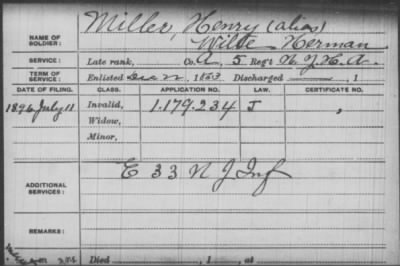 Miller, Henry (alias)
NAME OF SOLDIER: Wilde Herman
SERVICE: Late rank, Co. A, 5 Reg't N.Y.H.A.
TERM OF SERVICE: Enlisted 1863 Discharged , 1
DATE OF FILING. CLASS. APPLICATION NO. LAW. CERTIFICATE NO.
1896 July 11 Invalid, 1.179.234 J
Widow,
Minor,
ADDITIONAL SERVICES: E 33 N J Inf
REMARKS:
Died , 1 , at